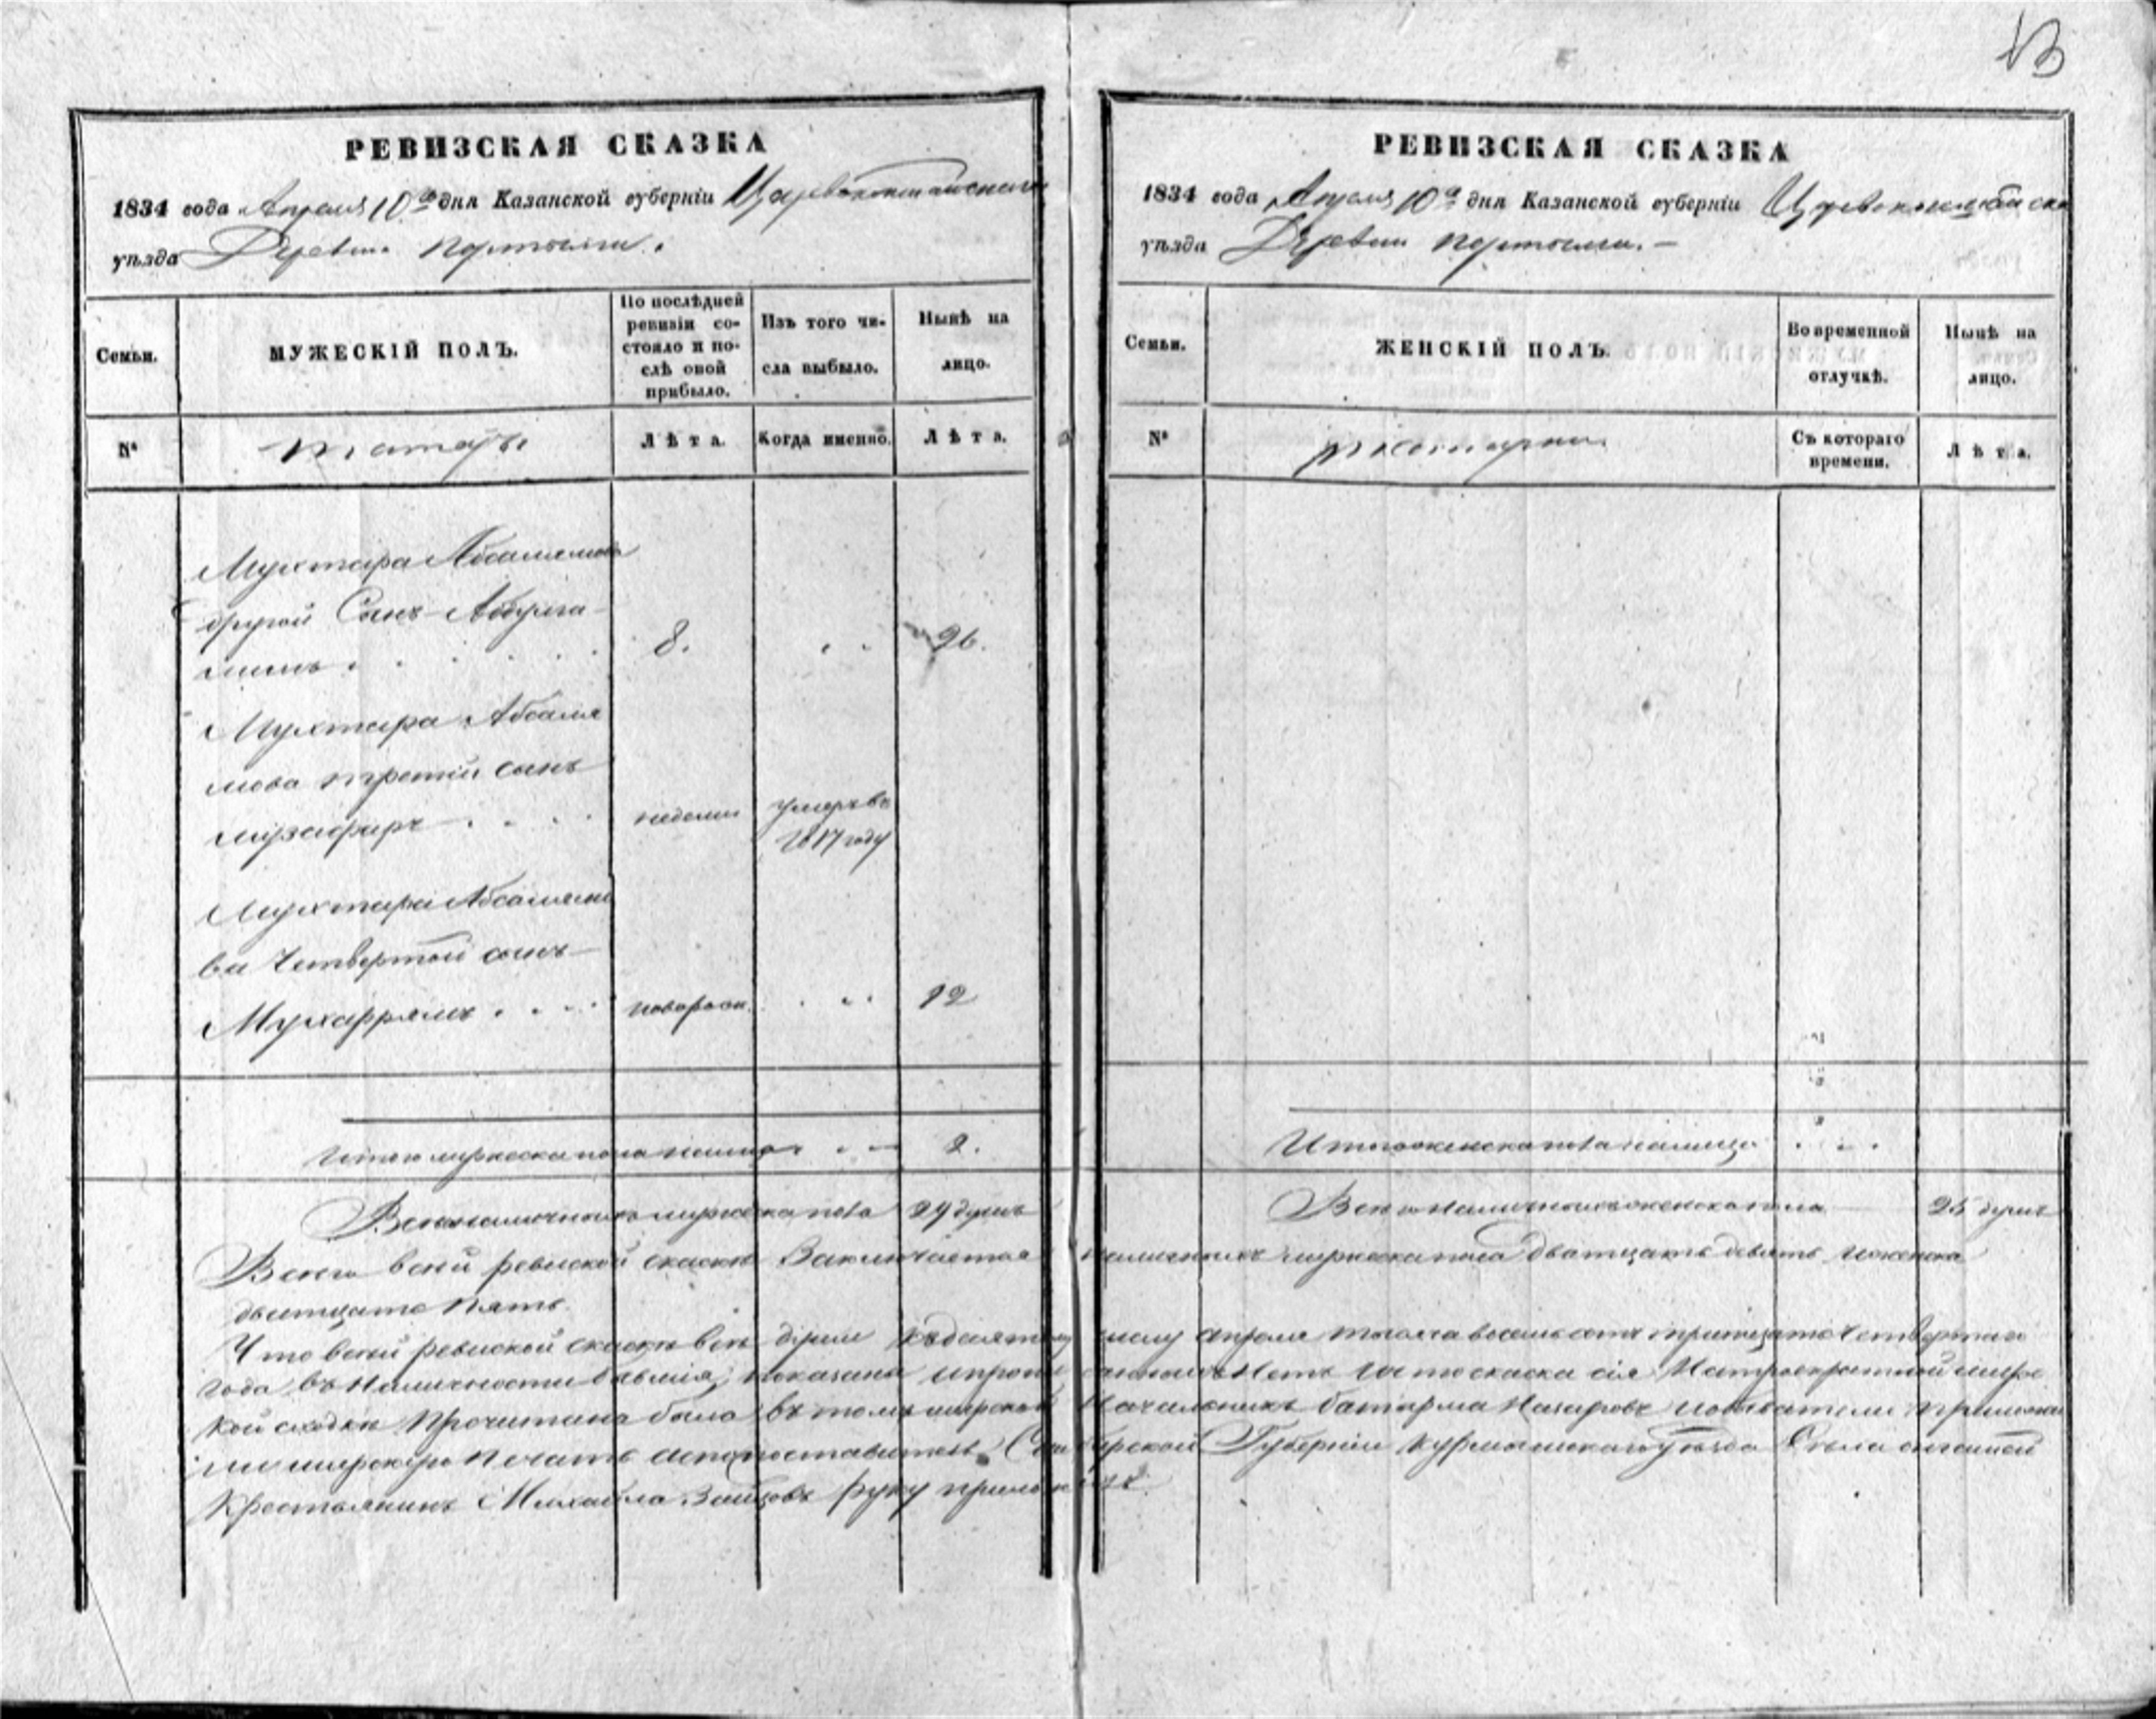 13
РЕВИЗСКАЯ СКАЗКА
1834 года Апреля 10го дня Казанской губерніи Царевококшайскаго
уѣзда Деревни Портянги.
Семьи.
МУЖЕСКІЙ ПОЛЪ.
По послѣдней
ревизіи со-
стояло и по-
слѣ оной
прибыло.
Изъ того чи-
сла выбыло.
Нынѣ на
лицо.
№
татары
Лѣта.
Когда именно.
Лѣта.
Мухтара Абсалямова
другой Сынъ Абдулга
8. 26.
Мухтара Абсаля
мова третий сынъ
музафаръ недели умеръ въ
1817 году
Мухтара Абсалямо
ва Четвертой сынъ
Мухаррямъ новорожд. 12
Итого мужеска пола налицо 2.
Всего наличныхъ мужеска пола 29 душъ
РЕВИЗСКАЯ СКАЗКА
1834 года Апреля 10го дня Казанской губерніи Царевококшайска
уѣзда Деревни Портянги.
Семьи.
ЖЕНСКІЙ ПОЛЪ.
Во временной
отлучкѣ.
Нынѣ на
лицо.
№
татарки
Съ котораго
времени.
Лѣта.
Итого женска пола налицо
Всего наличныхъ женска пола 25 душъ
Всего всей ревиской скаске Заключается наличныхъ мужеска пола дватцать девять и женска
дватцать пять.
Что всей ревиской скаске все души къ десятому числу апреля тысяча восемь сотъ тритцать четвертаго
года въ наличности бывшия, показана и прописныхъ нетъ и что скаска сия На троекратной мирс
кой сходке Прочитана была въ томъ мирской Начальникъ батырша Назаровъ и обыватели приложи
ли мирскую Печать Симбирской Губернии Курмышскаго уезда Села
Крестьянинъ Михайла Зайцовъ руку приложилъ